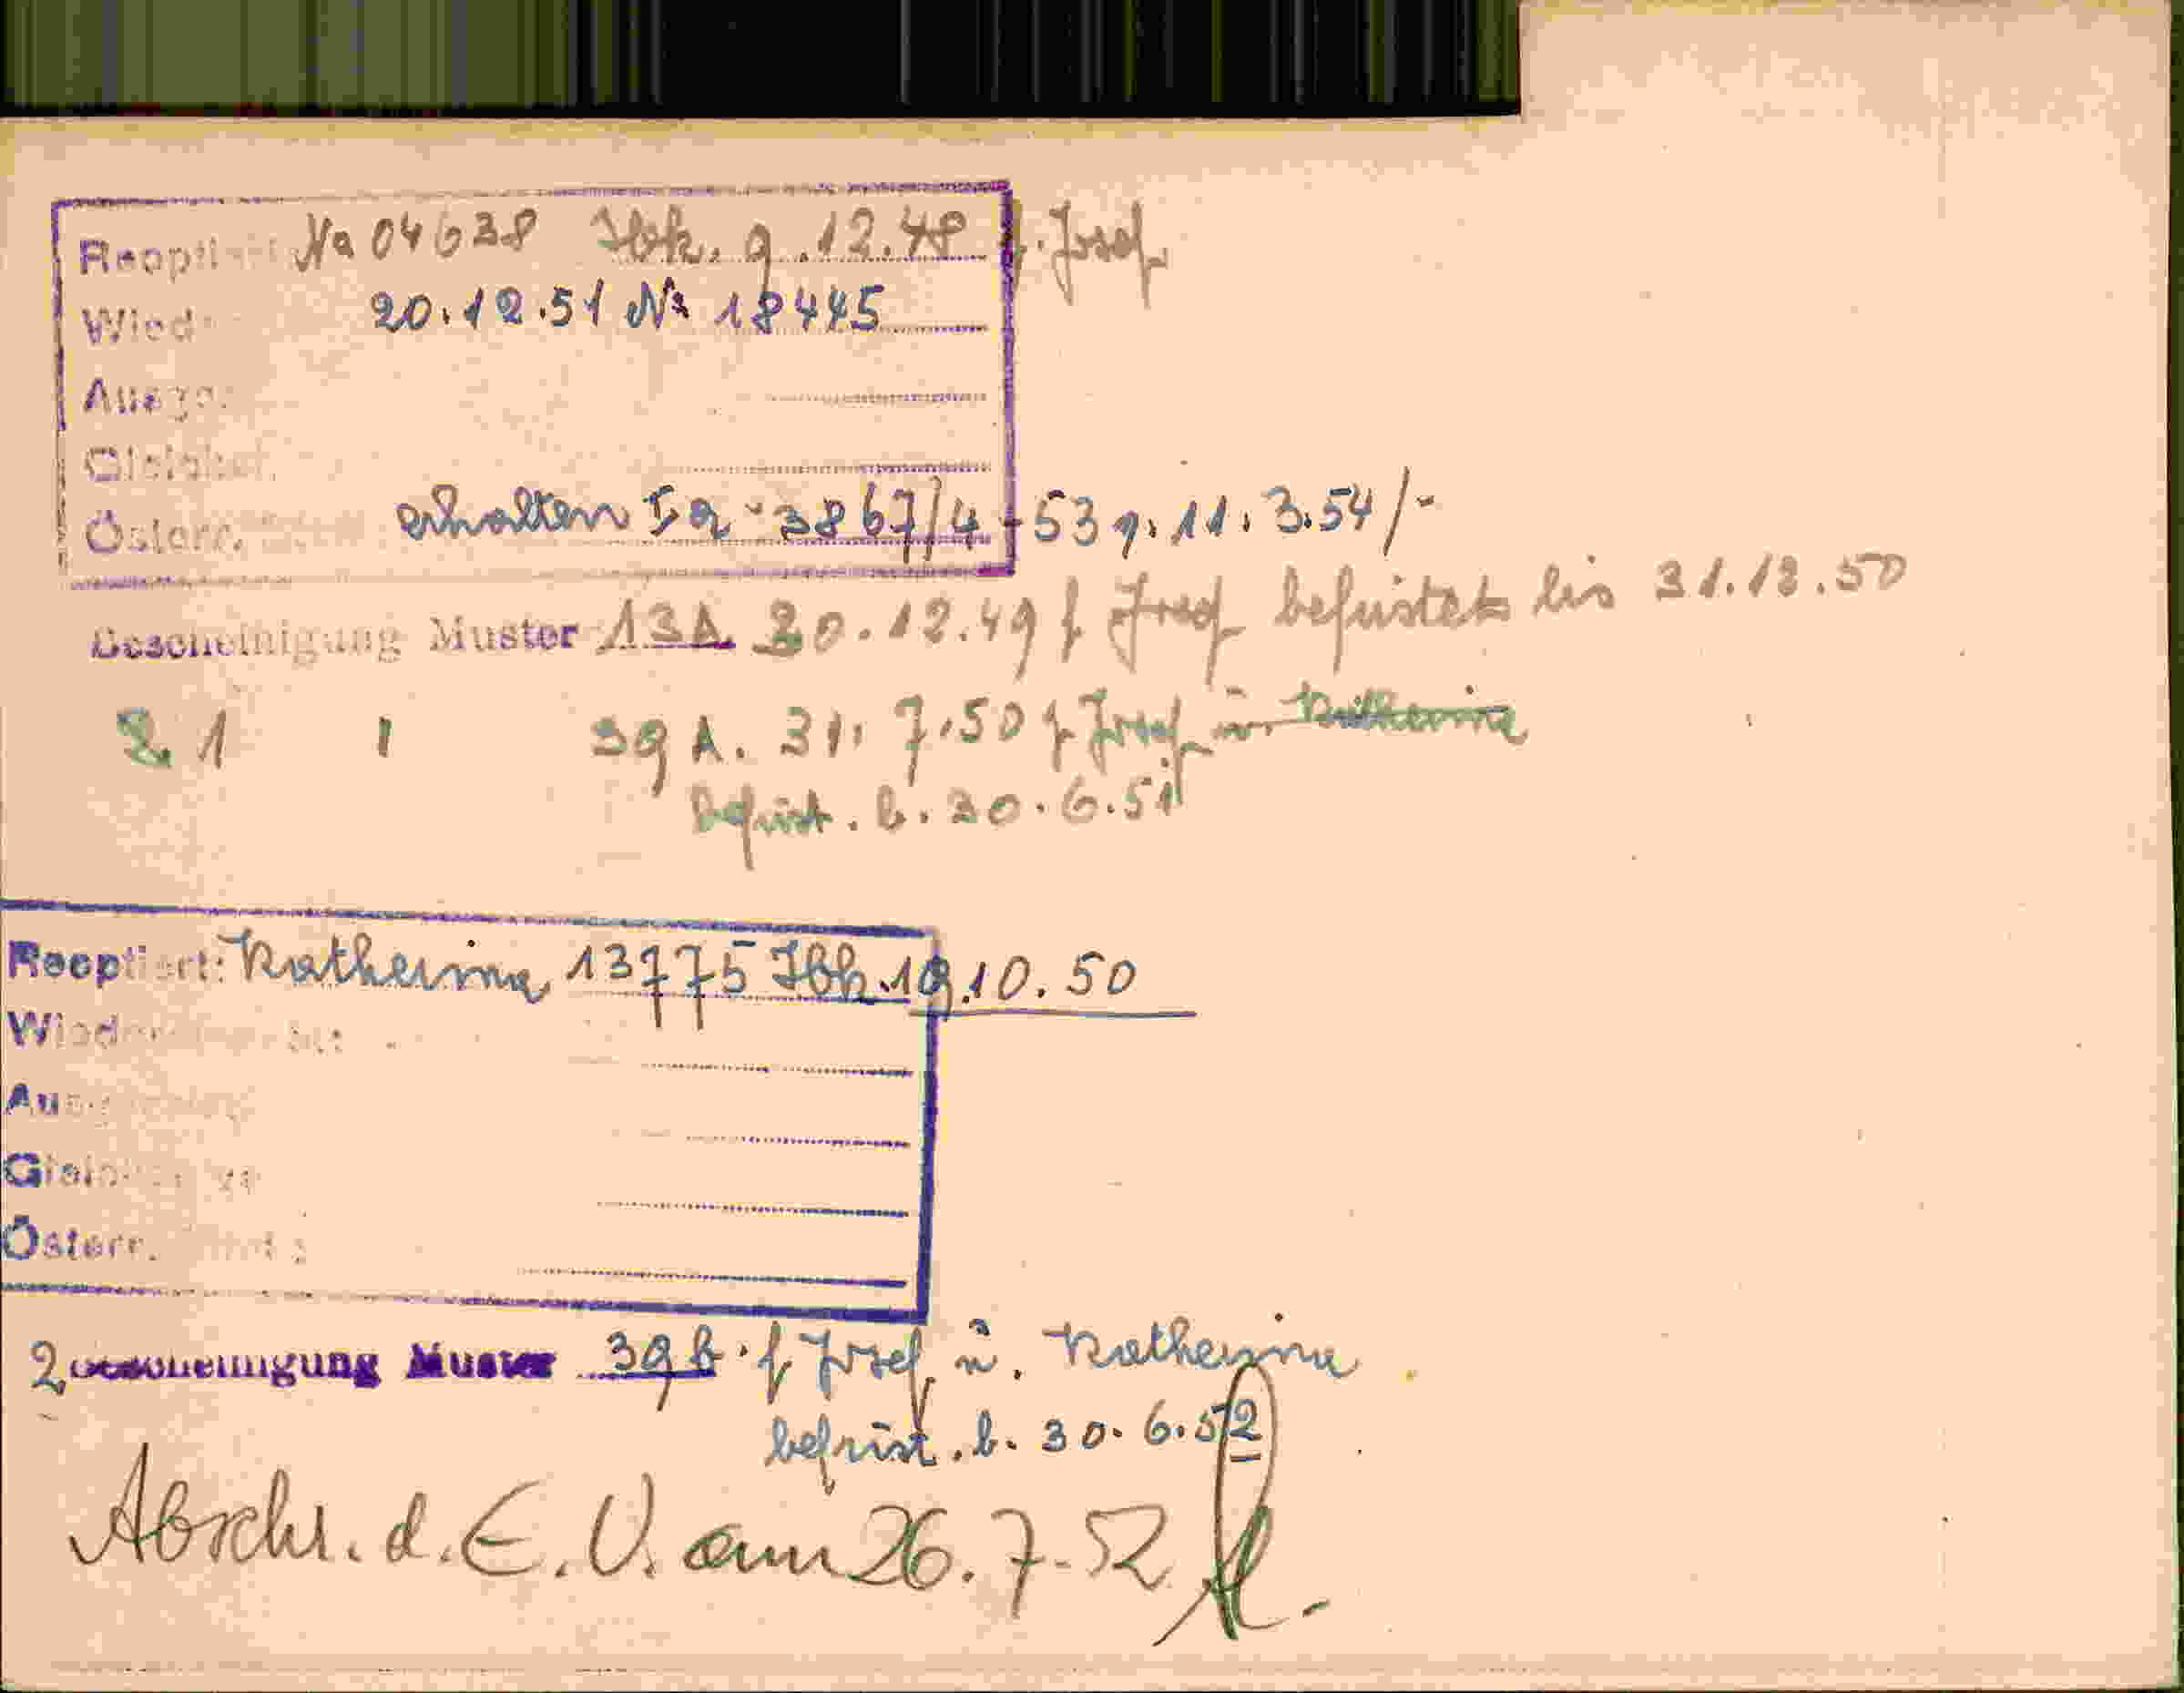 Reoptiert No 04638 Ibk. 9.12.48 f. Josef
Wied 20.12.51 № 18445
Ausge
Gleichst.
Österr. erhalten Ia-3867/4-53 v. 11.3.54/-
Bescheinigung Muster 13A 20.12.49 f Josef befristet bis 31.12.50
2 1 39 A. 31.7.50 f Josef u. Katherina
befrist. b. 30.6.51
Reoptiert: Katherina 13775 Ibk. 19.10.50
Wieder
Aus
Gleich
Österr.
2 Bescheinigung Muster 39b. f Josef u. Katherina
befrist. b. 30.6.52
Abschr. d. E. V. am 26.7.52